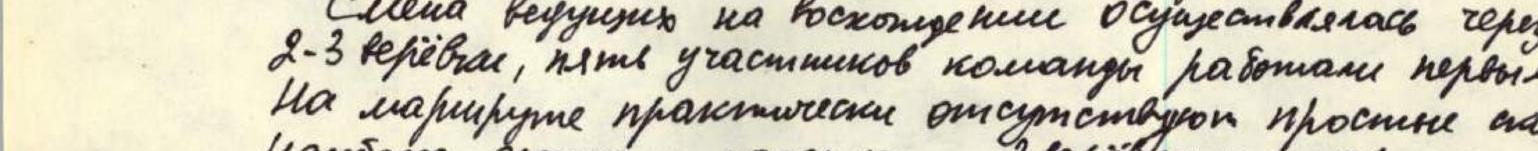 Смена ведущих на восхождении осуществлялась через
2-3 верёвки, пять участников команды работали первым
На маршруте практически отсутствуют простые ска